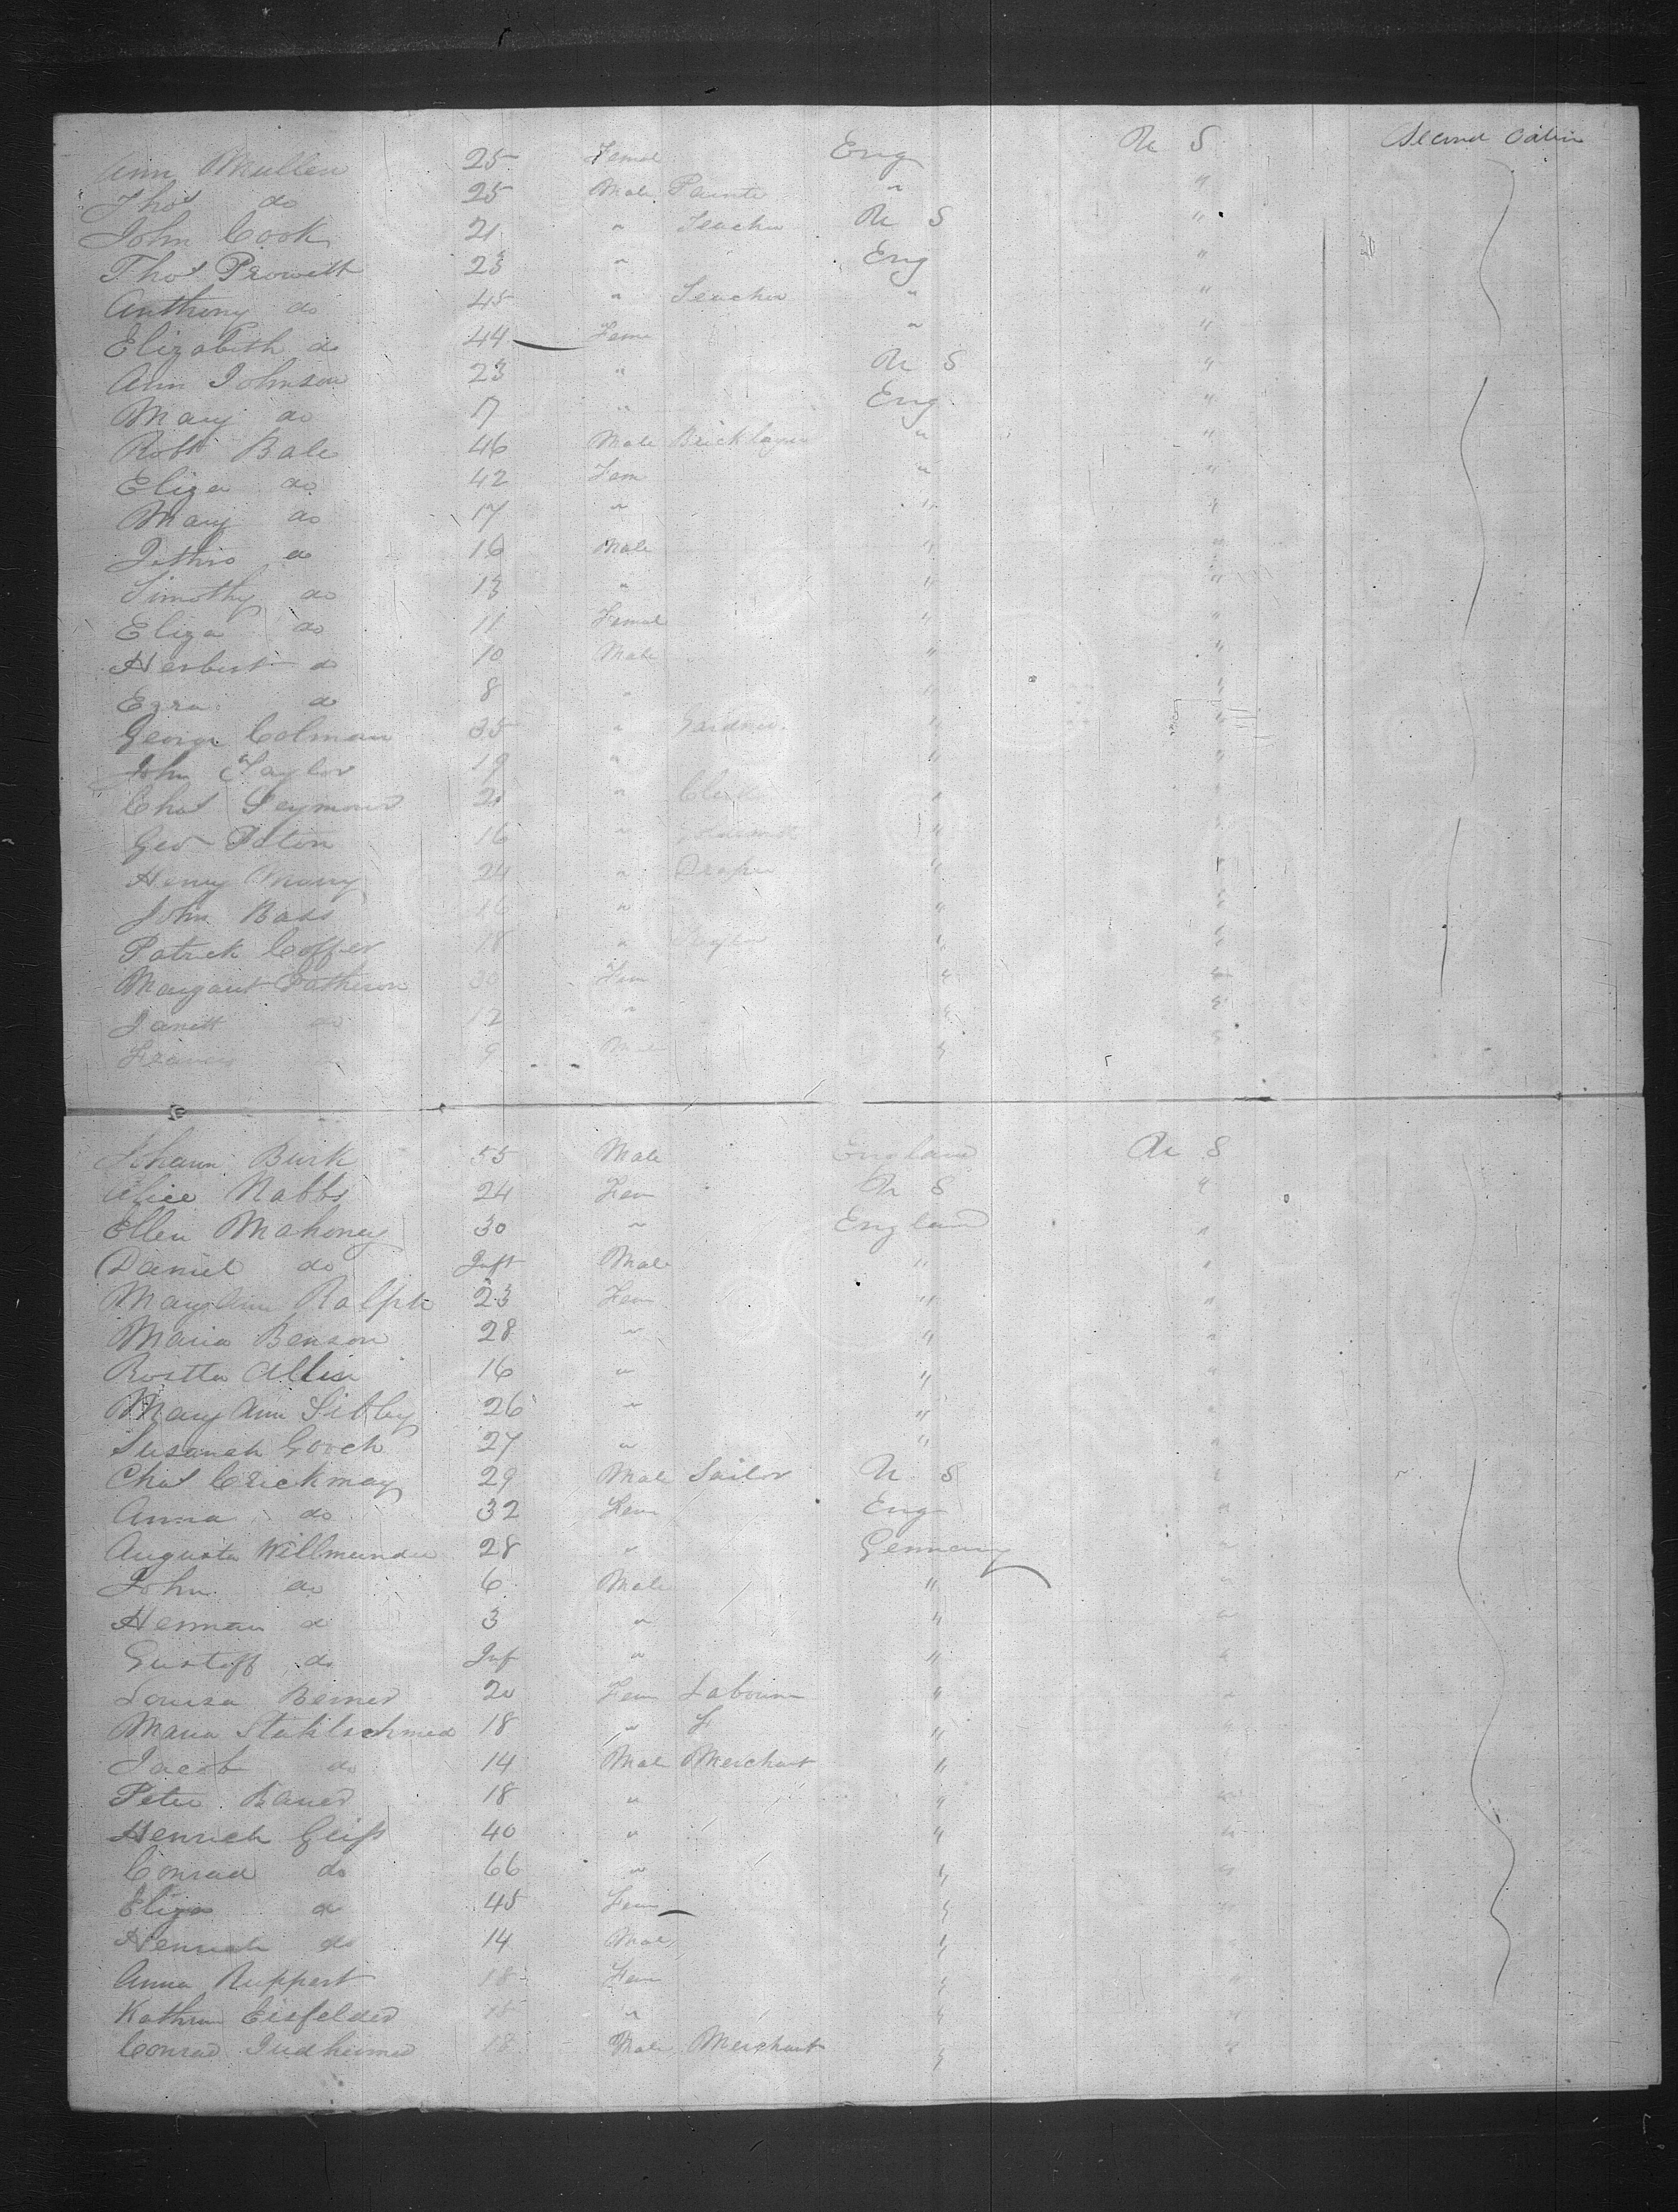 Ann Mullen 25 Femal Eng U S Second Cabin
Thos do 25 Male Painte " "
John Cook 21 " Teacher U S "
Thos Prowett 23 " Eng "
Anthony do 45 " Teacher " "
Elizabeth do 44 Feme " "
Ann Johnson 23 " U S "
Mary do 7 " Eng "
Robt Bale 46 Male Bricklayer " "
Eliza do 42 Fem " "
Mary do 17 " " "
Jethro do 16 Male " "
Timothy do 13 " " "
Eliza do 11 Femal " "
Herbert do 10 Male " "
Ezra do 8 " " "
George Colman 35 " Gardner " "
John Taylor 19 " " "
Chas Seymour 21 " Clerk " "
Geo Paton 16 " " "
Henry Marry 24 " Draper " "
John Bass 16 " " "
Patrick Coffer 18 " " "
Margaret 30 Fem " "
Janett do 12 " " "
Francis 9 Male " "
Johann Burk 55 Male England U S
Alice Nabbs 24 Fem U S "
Ellen Mahoney 30 " England "
Daniel do Inft Male " "
Mary Ann Ralph 23 Fem " "
Maria Benson 28 " " "
Rosetta Allen 16 " " "
Mary Ann Sibby 26 " " "
Susanah Gooch 27 " " "
Chas Crickmay 29 Male Sailor U S "
Anna do 32 Fem Eng "
Augusta 28 " Germany "
John do 6 Male " "
Herman do 3 " " "
Gustoff do Inf " " "
Louisa 20 Fem Labourer " "
Maria 18 " " "
Jacob do 14 Male Merchant " "
Peter Bauer 18 " " "
Henrich Geiss 40 " " "
Conrad do 66 " " "
Eliza do 45 Fem " "
Henrich do 14 Male " "
Anna Ruppert 18 Fem " "
Kathrin Eisfelder 18 " " "
Conrad 18 Male Merchant " "